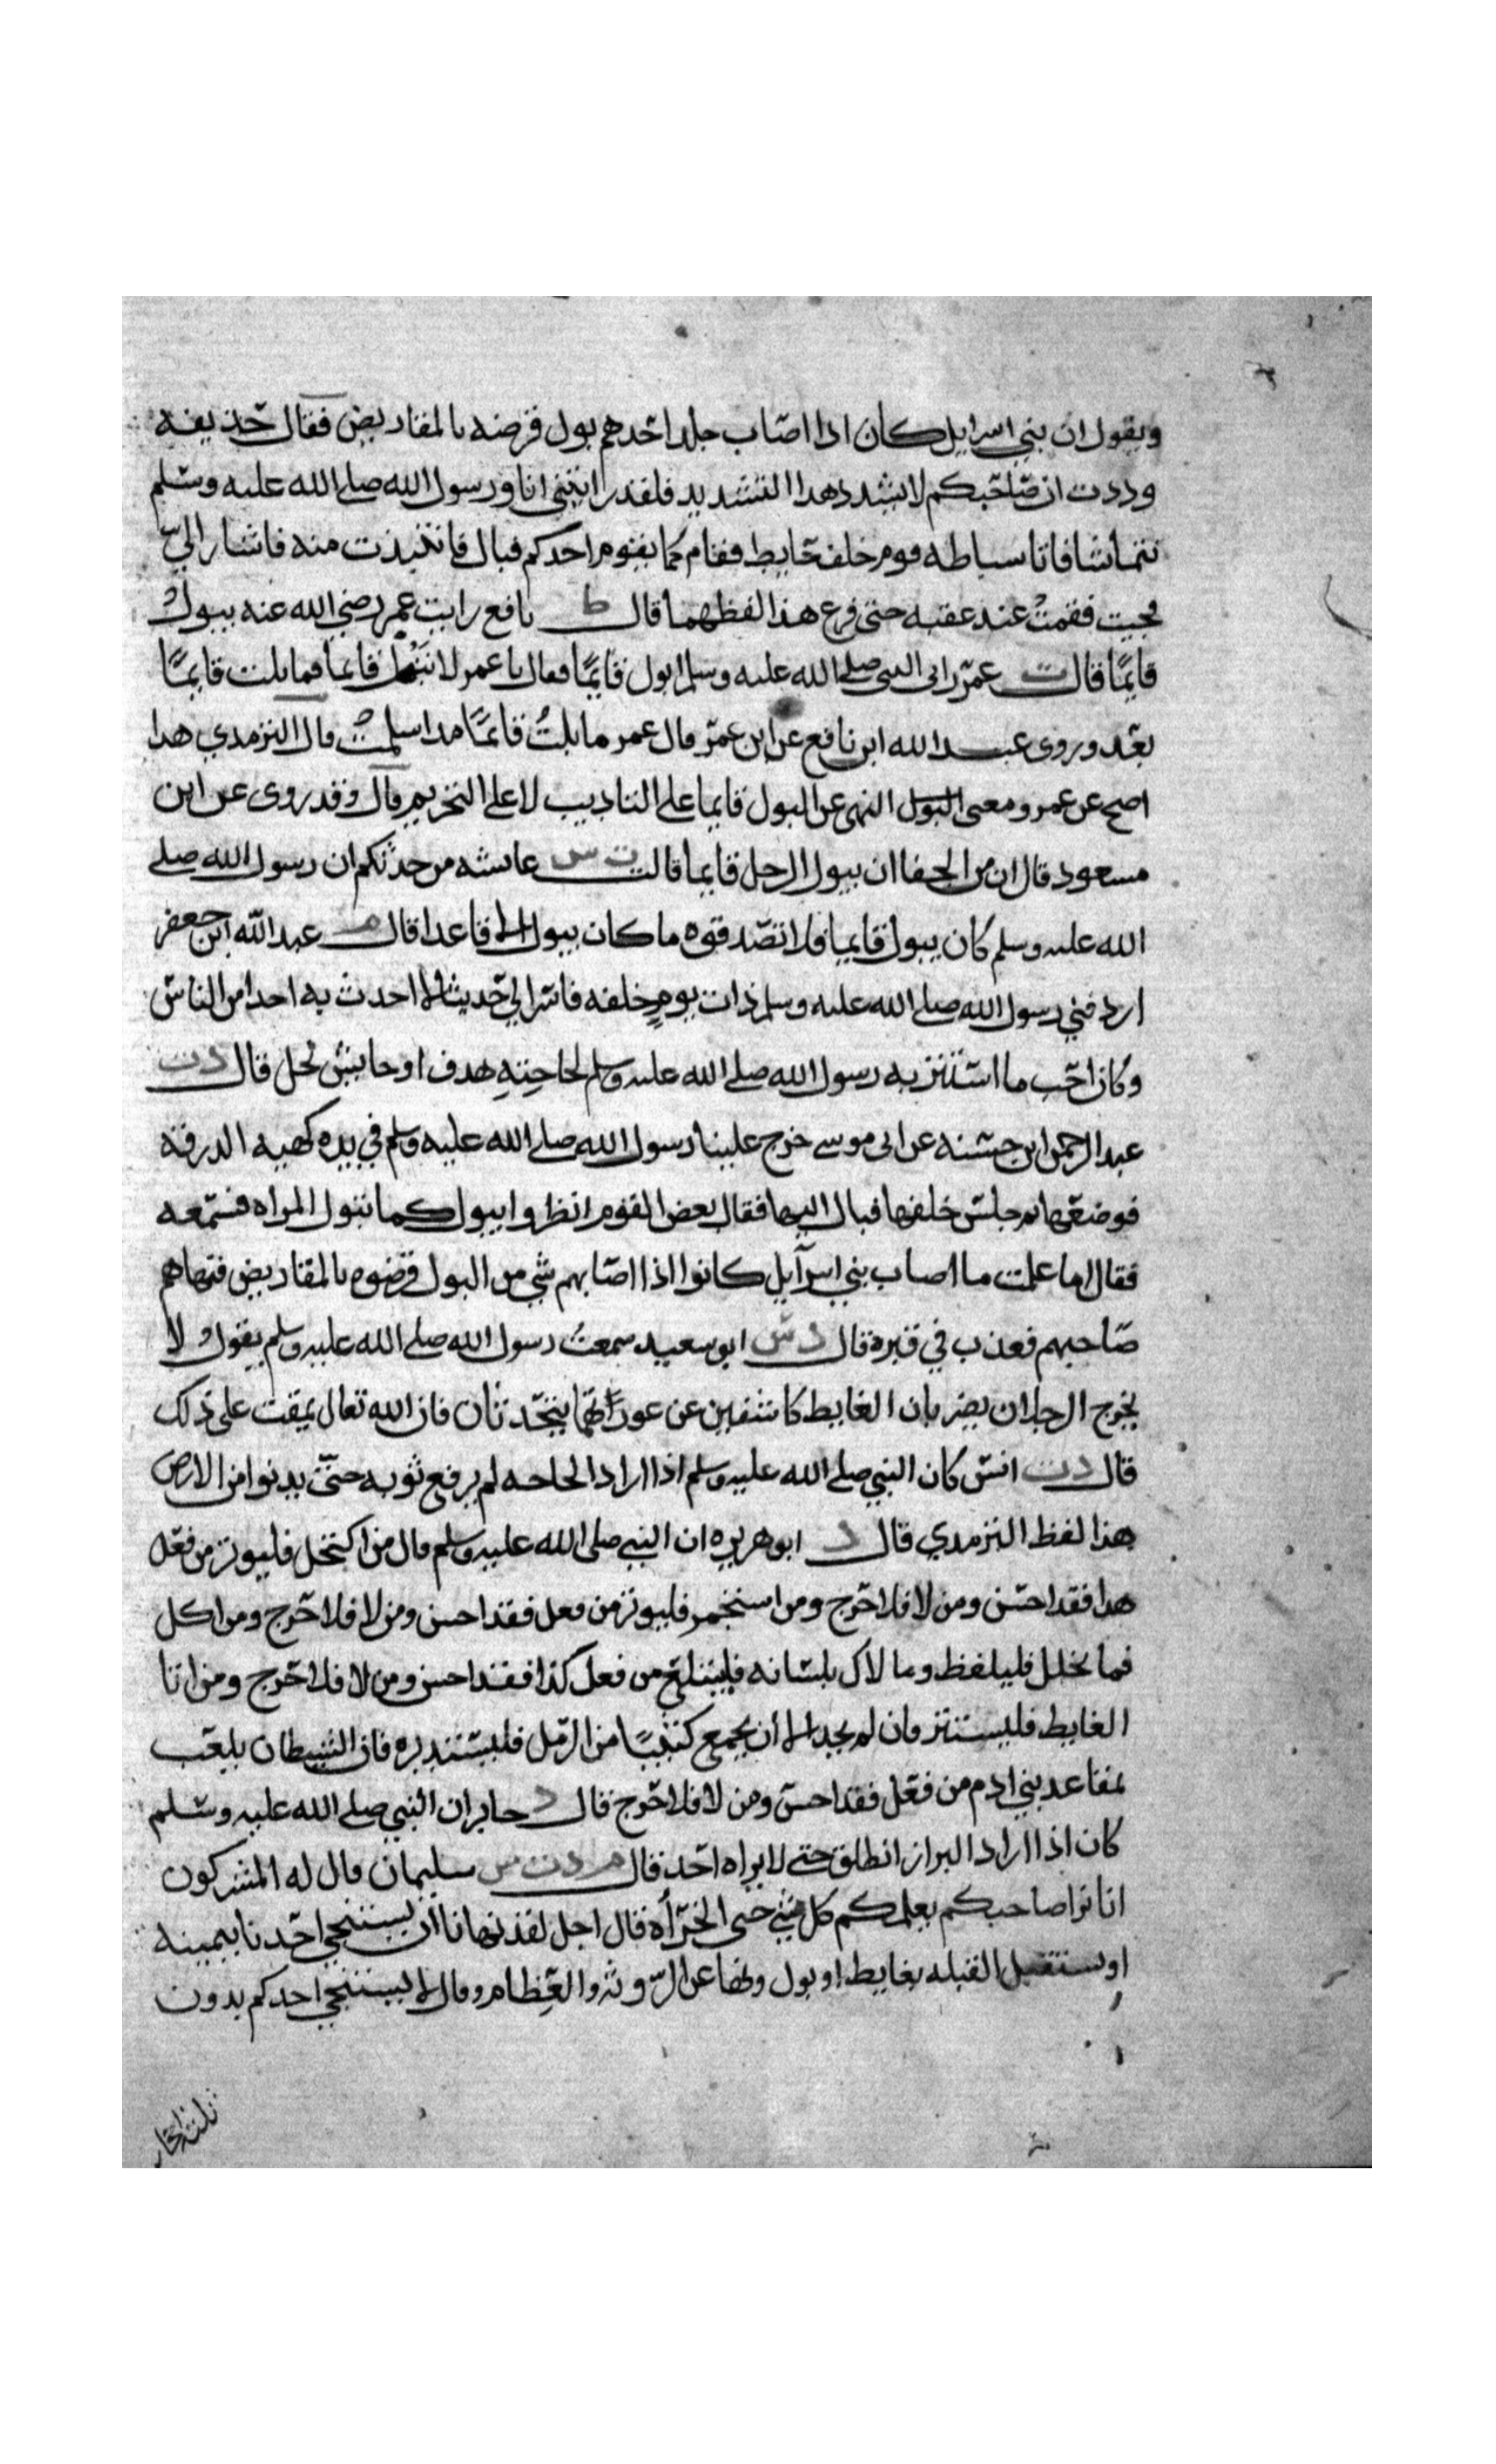 ويقول ان بني اسرايل كان اذا اصاب جلد احدهم بول قرضه بالمقاريض فقال حذيفه
وددت ان صاحبكم لا يشدد هذا التشديد فلقد رايتني انا ورسول الله صلى الله عليه وسلم
نتماشا فاتا سباطه قوم خلف حايط فقام كما يقوم احدكم فبال فانتبذت منه فاشار الي
فجيت فقمت عند عقبه حتى فرغ هذا لفظهما قال ط نافع رايت عمر رضي الله عنه يبول
قايمًا قال ت عمر راني النبي صلى الله عليه وسلم ابول قايمًا فقال يا عمر لا تبل قايما فما بلت قايمًا
بعد وروى عبد الله ابن نافع عن ابن عمر قال عمر ما بلتُ قائمًا مذ اسلمت قال الترمذي هذا
اصح عن عمر ومعنى البول النهى عن البول قايما على التاديب لا على التحريم قال وقد روى عن ابن
مسعود قال ان من الجفا ان يبول الرجل قايما قالت ت س عائشه من حدثكم ان رسول الله صلى
الله عليه وسلم كان يبول قايما فلا تصدقوه ما كان يبول الا قاعدا قال م عبد الله ابن جعفر
اردفني رسول الله صلى الله عليه وسلم ذات يومٍ خلفه فاسر الي حديثا لا احدث به احدا من الناس
وكان احب ما استتر به رسول الله صلى الله عليه وسلم لحاجتهِ هدف او حايش نخل قال د ت
عبد الرحمن ابن حسنه عن ابي موسى خرج علينا رسول الله صلى الله عليه وسلم في يده كهيه الدرقه
فوضعها ثم جلس خلفها فبال اليها فقال بعض القوم انظروا يبول كما تبول المراه فسمعه
فقال اما علمت ما اصاب بني اسرآيل كانوا اذا اصابهم شي من البول قرضوه بالمقاريض فنهاهم
صاحبهم فعذب في قبره قال د س ابو سعيد سمعت رسول الله صلى الله عليه وسلم يقول لا
يخرج الرجلان يضربان الغايط كاشفين عن عوراتهما يتحدثان فان الله تعال يمقت على ذلك
قال د ت انس كان النبي صلى الله عليه وسلم اذا اراد الحاجه لم يرفع ثوبه حتى يدنوا من الارض
هذا لفظ الترمدي قال د ابو هريره ان النبي صلى الله عليه وسلم قال من اكتحل فليوتر من فعل
هذا فقد احسن ومن لا فلا حرج ومن استجمر فليوتر من فعل فقد احسن ومن لا فلا حرج ومن اكل
فما تخلل فليلفظ وما لاك بلسانه فليبتلع من فعل كذا فقد احسن ومن لا فلا حرج ومن اتا
الغايط فليستتر فان لم يجد الا أن يجمع كثيبًا من الرمل فليستدبره فان الشيطان يلعب
بمقاعد بني ادم من فعل فقد احسن ومن لا فلا حرج قال د جابر ان النبي صلى الله عليه وسلم
كان اذا اراد البراز انطلق حتى لا يراه احد قال م د ت س سليمان قال له المشركون
انا نرا صاحبكم يعلمكم كل شي حتى الخرأه قال اجل لقد نهانا أن يستنجي احدنا بيمينه
او يستقبل القبله بغايط او بول ونها عن الروث والعِظام وقال لا يستنجي احدكم بدون